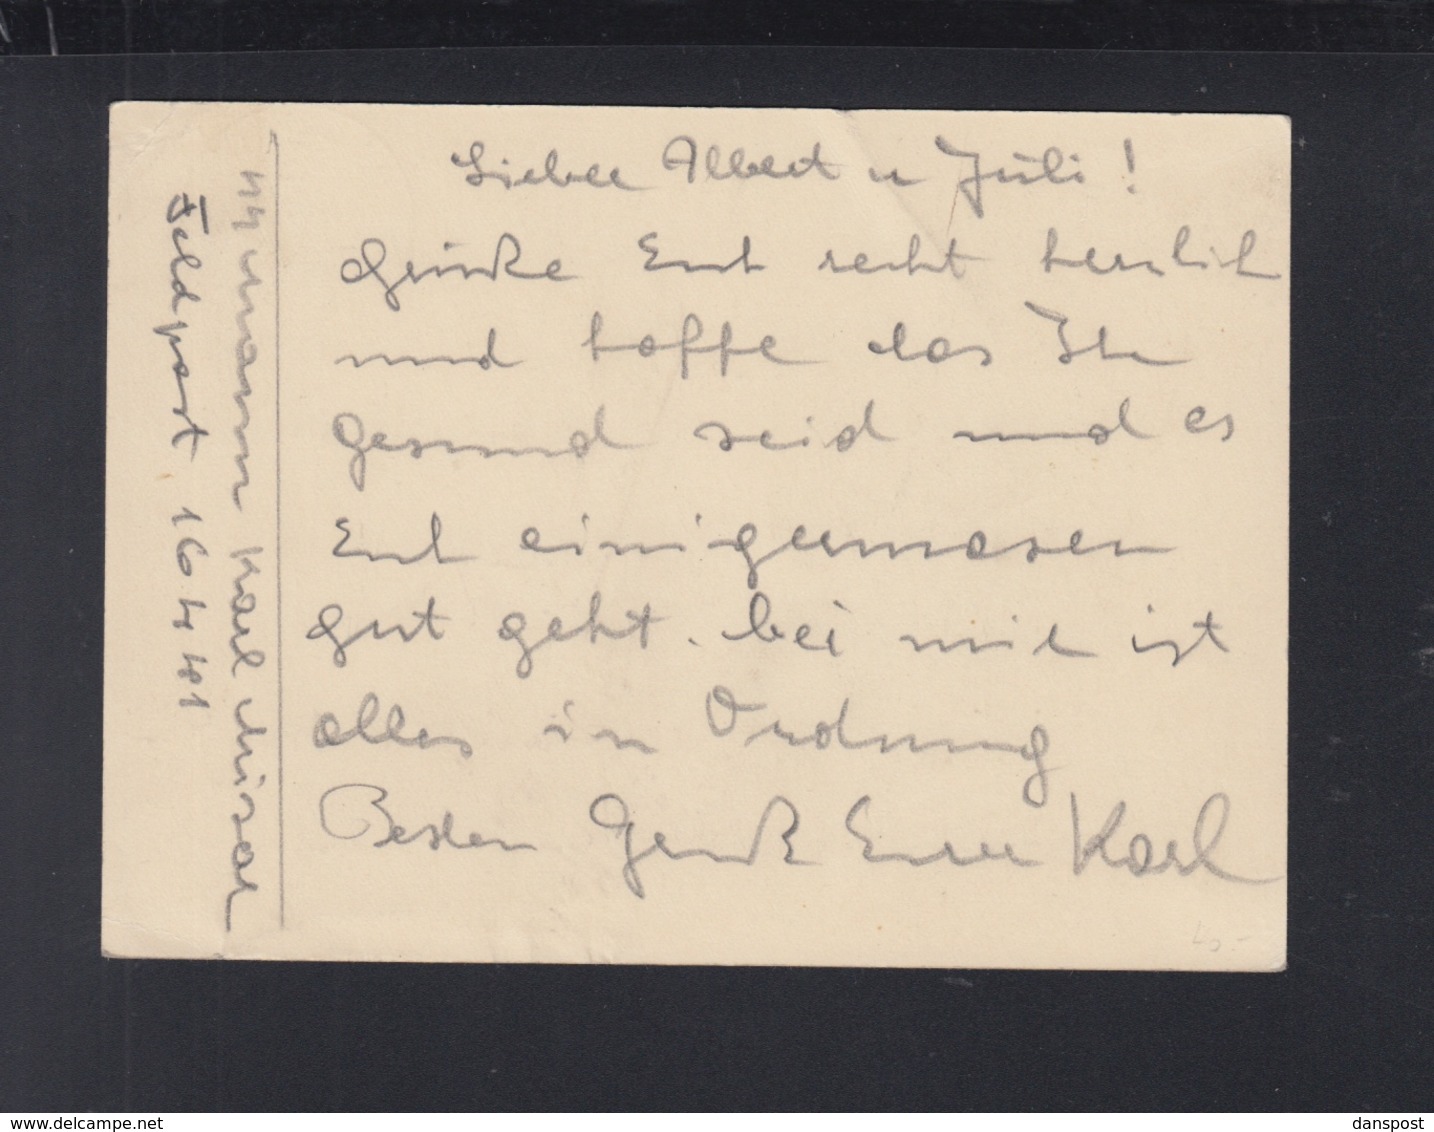 Lieber Albert u Juli!
Grüße Euch recht herzlich
und hoffe das Ihr
gesund seid und es
Euch einigermasen
gut geht. bei mir ist
alles in Ordnung
Besten Gruß Euer Karl
mann Karl
Feldpost
danspost
www.delcampe.net